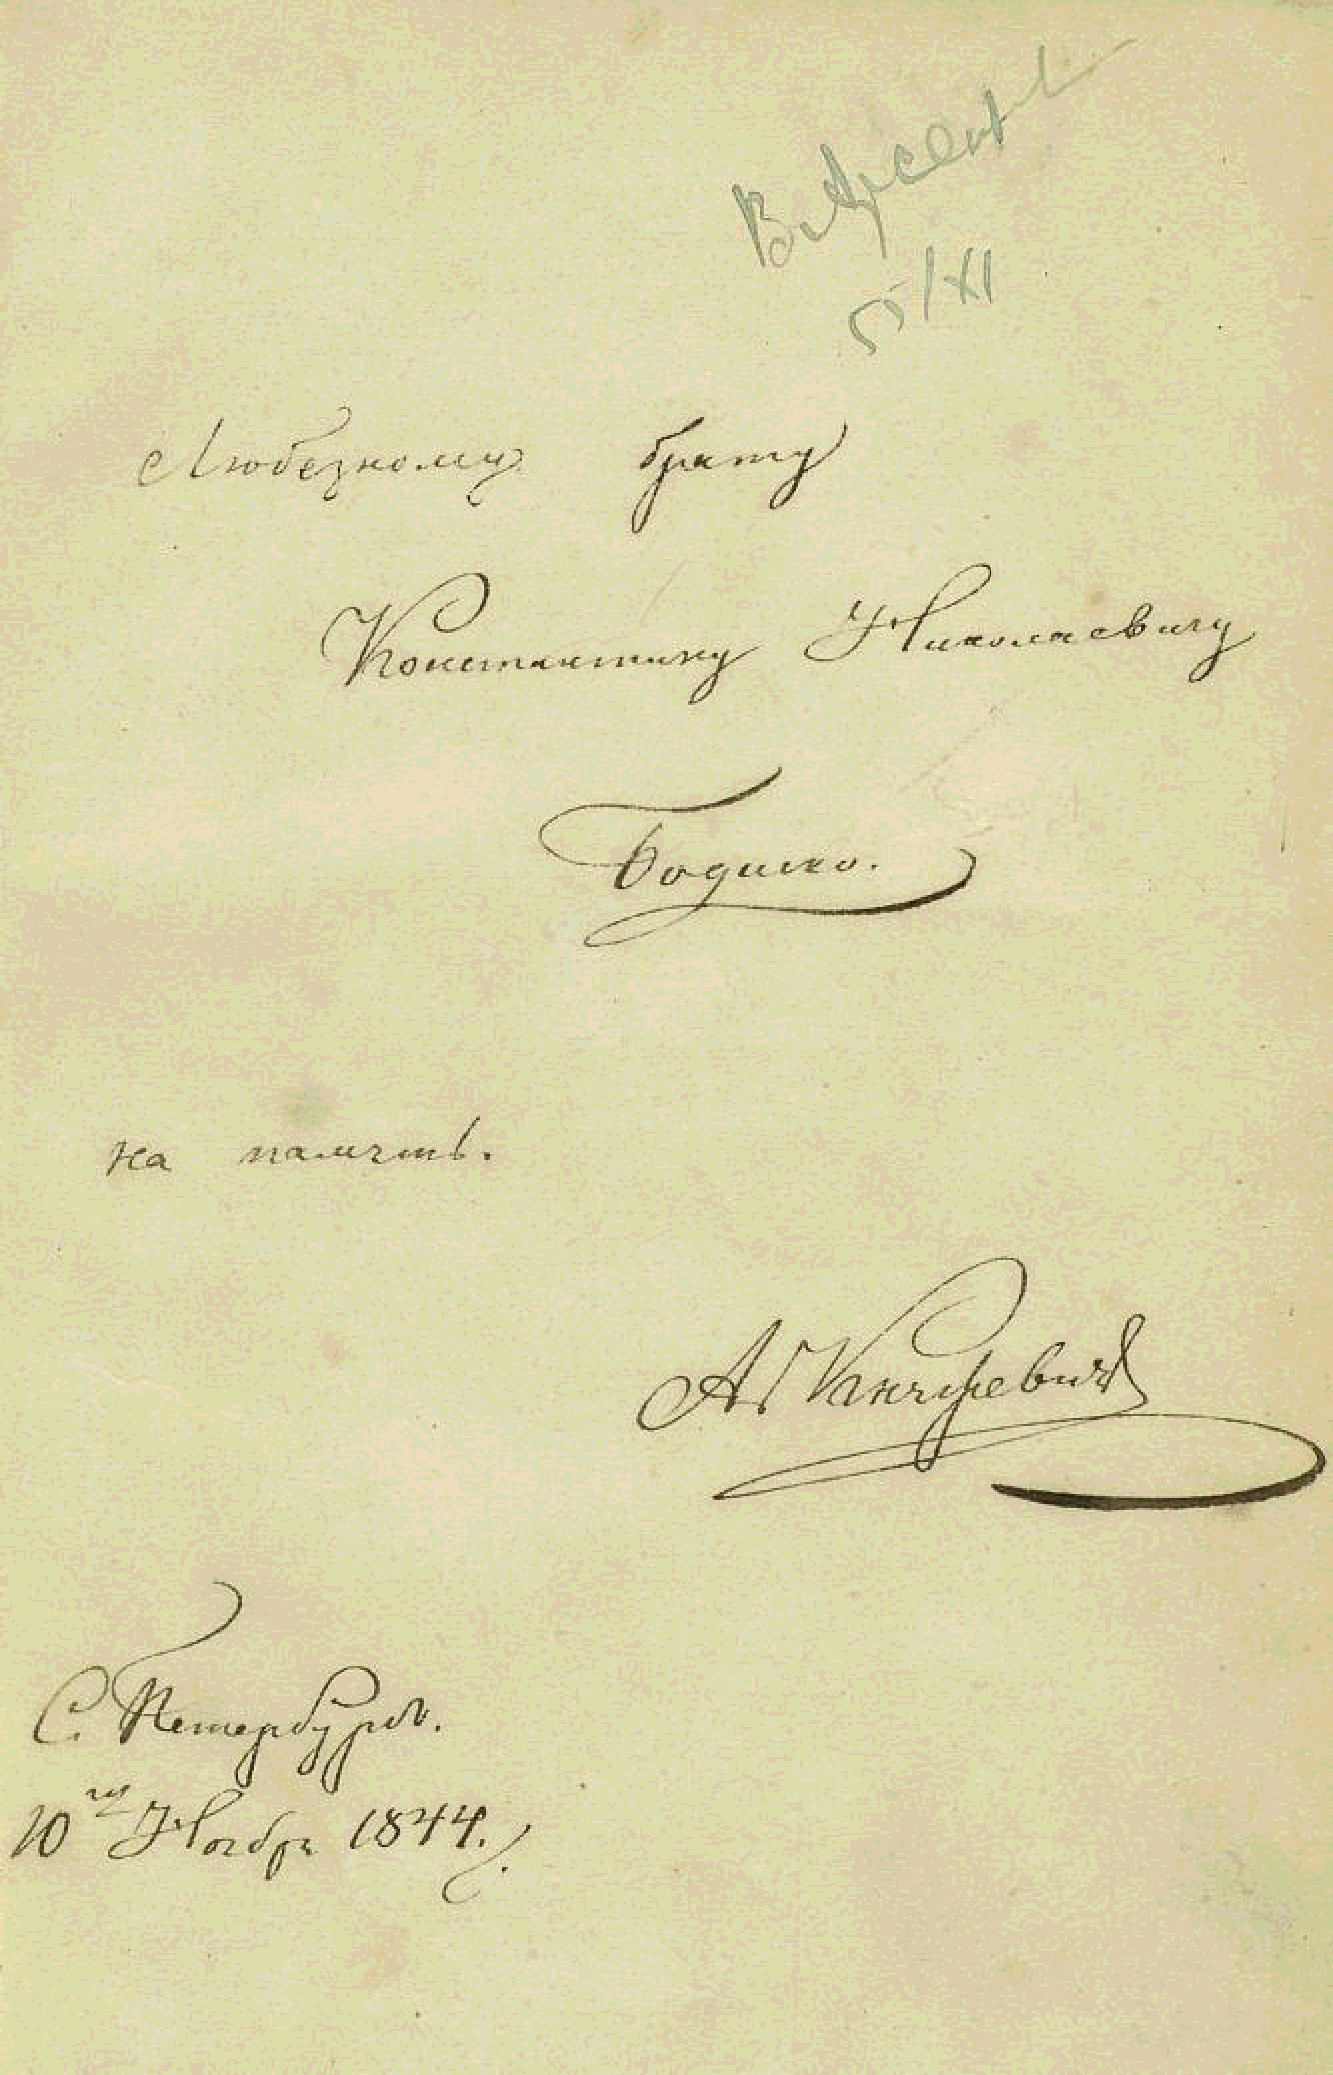 5/XI
Любезному брату
Константину Николаевичу
Бодиско.
на память.
А Княжевичъ
С. Петербургъ.
10го Ноября 1844.